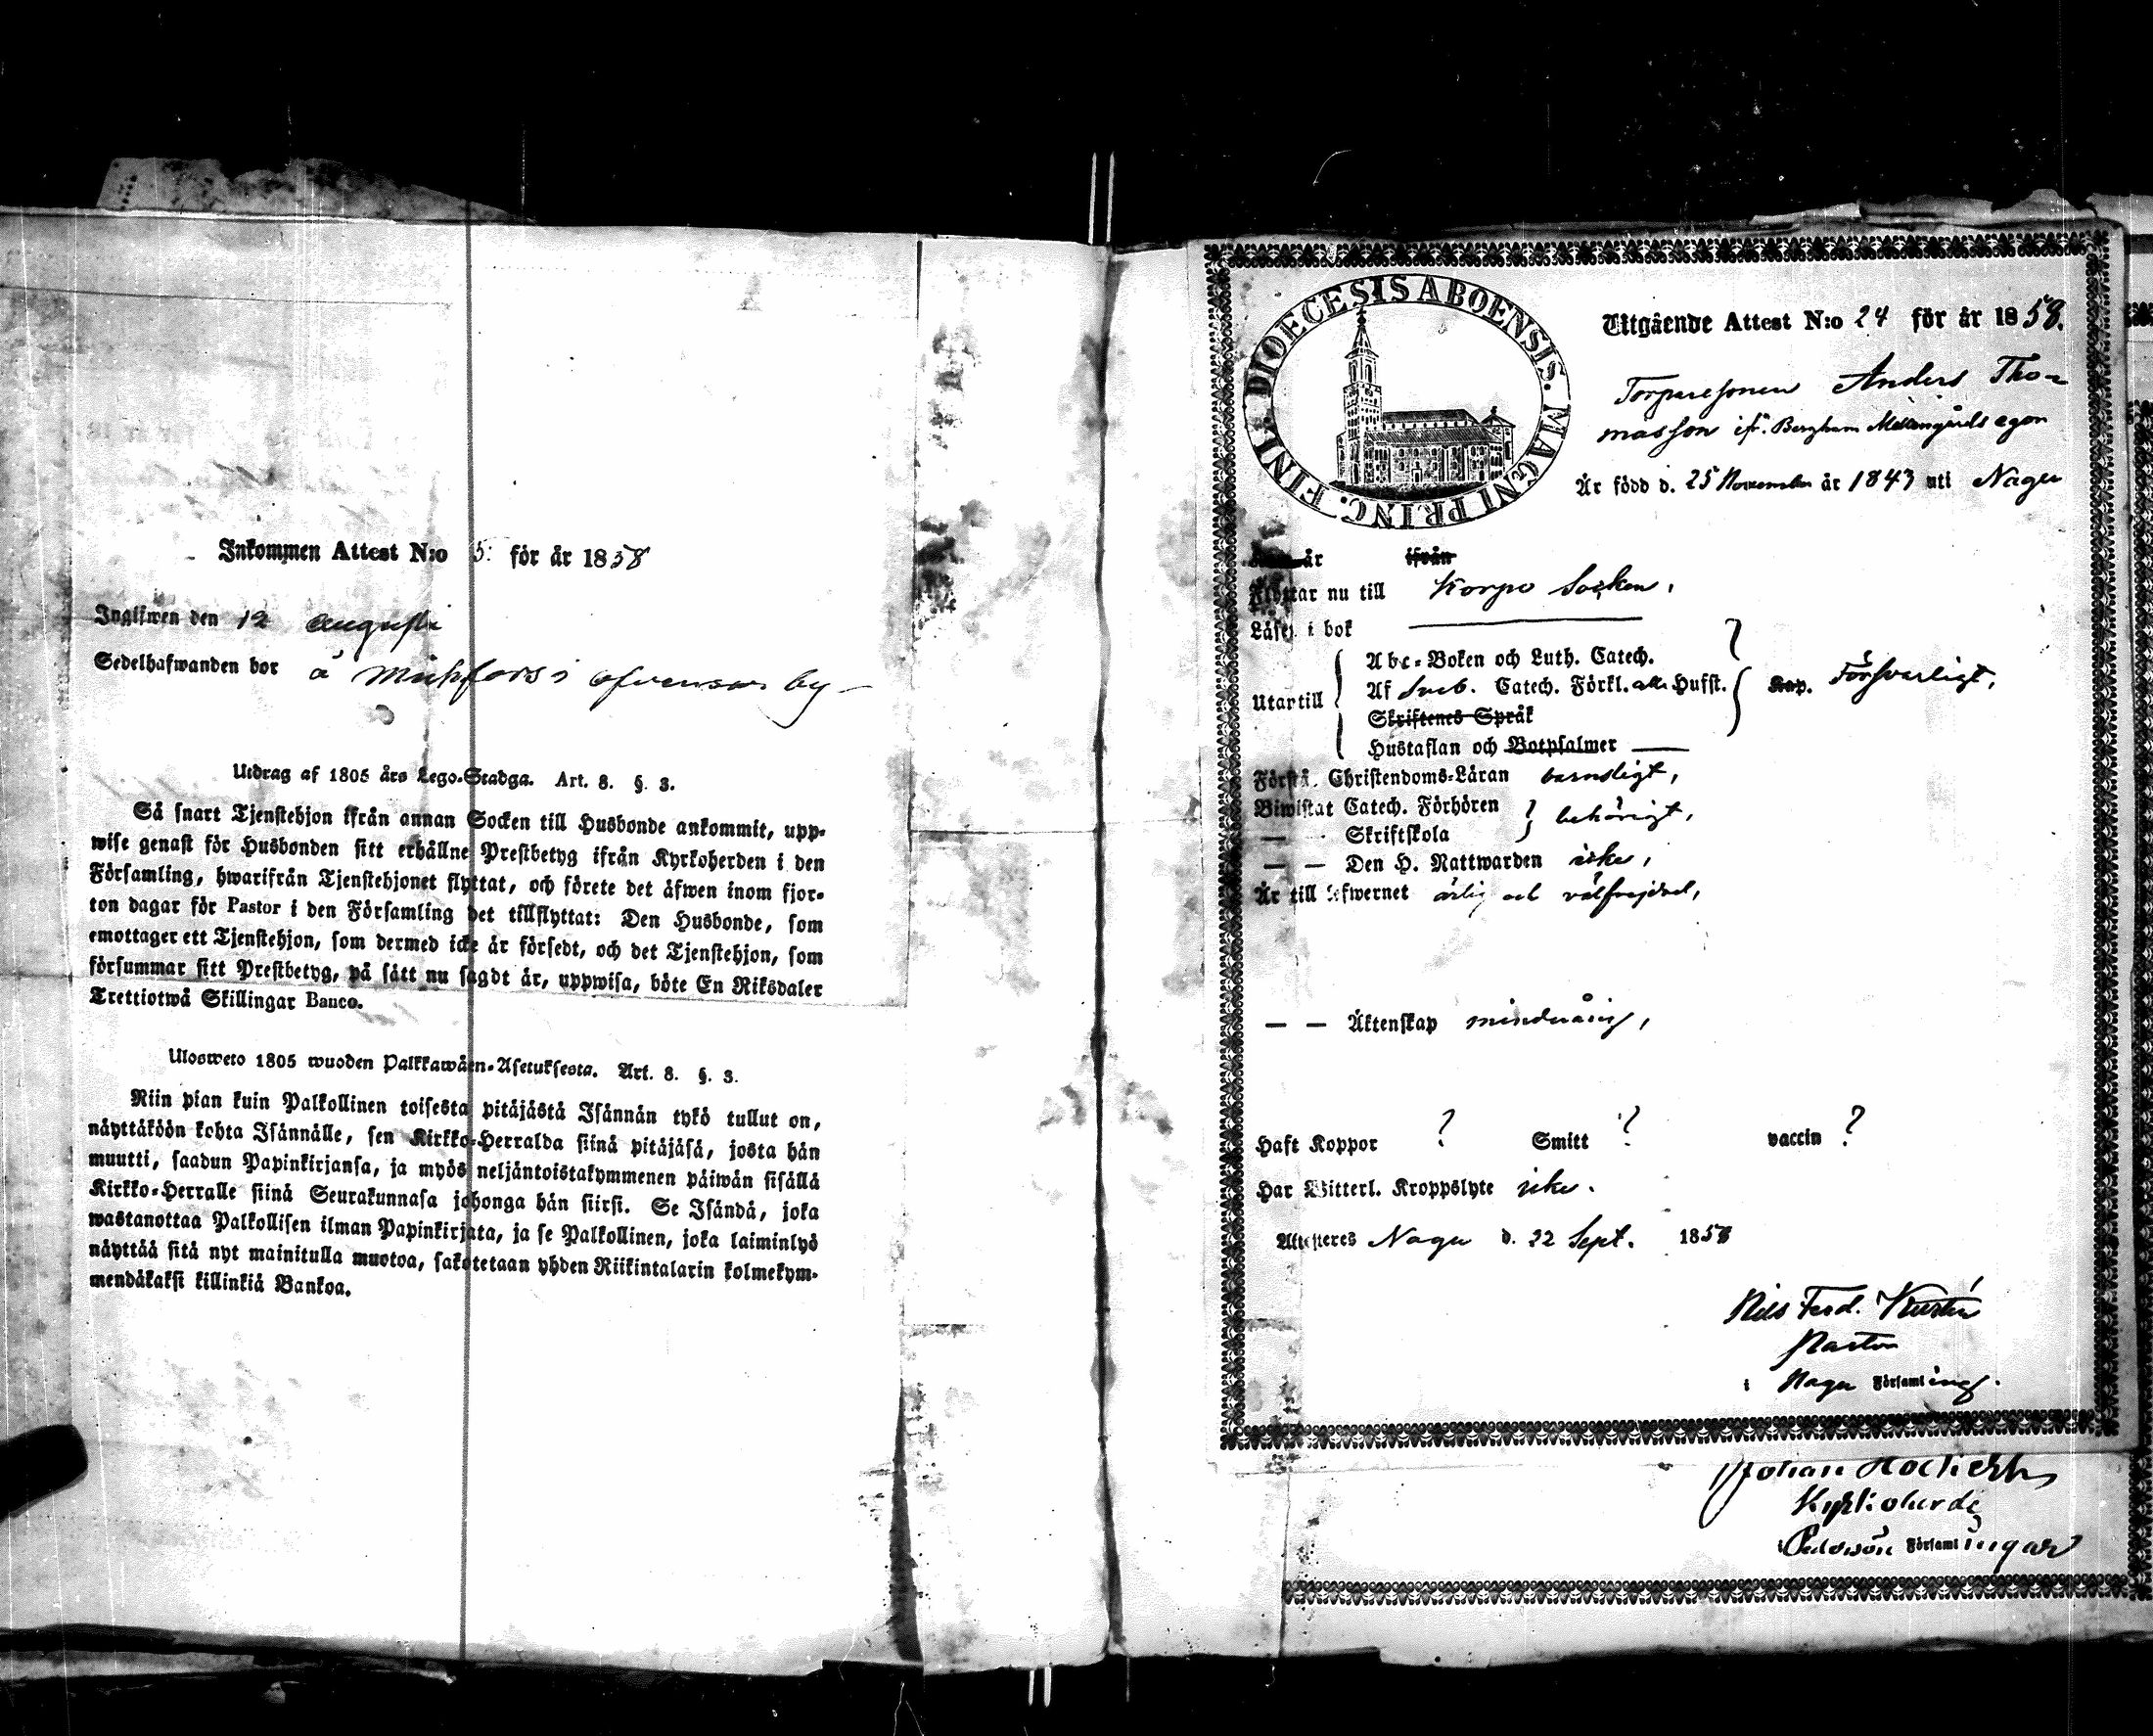 Inkommen Attest N:o 5: för år 1858
Inglifwen den 12 Augusti
Sedelhafwanden bor å i ofvensor by
Utdrag af 1805 års Lego-Stadga. Art. 8. §. 3.
Så snart Tjenstehjon ifrån annan Socken till Husbonde ankommit, upp-
wise genast för Husbonden sitt erhållne Prestbetyg ifrån Kyrkoherden i den
Församling, hwarifrån Tjenstehjonet flyttat, och förete det äfwen inom fjor-
ton dagar för Pastor i den Församling det tillflyttat: Den Husbonde, som
emottager ett Tjenstehjon, som dermed icke är försedt, och det Tjenstehjon, som
försummar sitt Prestbetyg, på sätt nu sagdt är, uppwisa, böte En Riksdaler
Trettiotwå Skillingar Banco.
Ulosweto 1805 wuoden Palkkawäen-Asetuksesta. Art. 8. §. 3.
Niin pian kuin Palkollinen toisesta pitäjästä Isännän tykö tullut on,
näyttäköön kohta Isännälle, sen Kirkko-Herralda siinä pitäjäsä, josta hän
muutti, saadun Papinkirjansa, ja myös neljäntoistakymmenen päiwän sisällä
Kirkko-Herralle siinä Seurakunnasa johonga hän siirsi. Se Isändä, joka
wastanottaa Palkollisen ilman Papinkirjata, ja se Palkollinen, joka laiminlyö
näyttää sitä nyt mainitulla muotoa, sakotetaan yhden Riikintalarin kolmekym-
mendäkaksi killinkiä Bankoa.
FINL. DIOECESIS ABOENSIS. MAGNI PRINC.
Utgående Attest N:o 24 för år 1858.
Torparesonen Anders Tho-
masson ifr. Bergham Mellangårds egor
Är född d. 25 November år 1843 uti Nagu
är ifrån
Flyttar nu till Korpo Socken,
Läser i bok
Abc-Boken och Luth. Catech. ?
Utantill Af Sveb. Catech. Förkl. alla Hufst. Kap. Försvarligt,
Skriftenes Språk
Hustaflan och Botpsalmer
Förstå. Christendoms-Läran barnsligt,
Biwistat Catech. Förhören behörigt,
— Skriftskola
— — Den H. Nattwarden icke,
Är till lefwernet ärlig och välfrejdad,
— — Äktenskap minderårig,
Haft Koppor ? Smitt ? vaccin ?
Har Witterl. Kroppslyte icke.
Attesteres Nagu d. 22 Sept. 1858
Nils Ferd.
Pastor
i Nagu Församling.
Johan
Kyrkoherde
i Församlingar